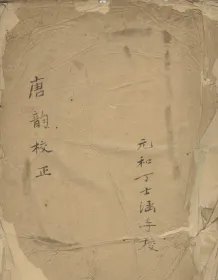 唐韻校正
元和丁士涵手校